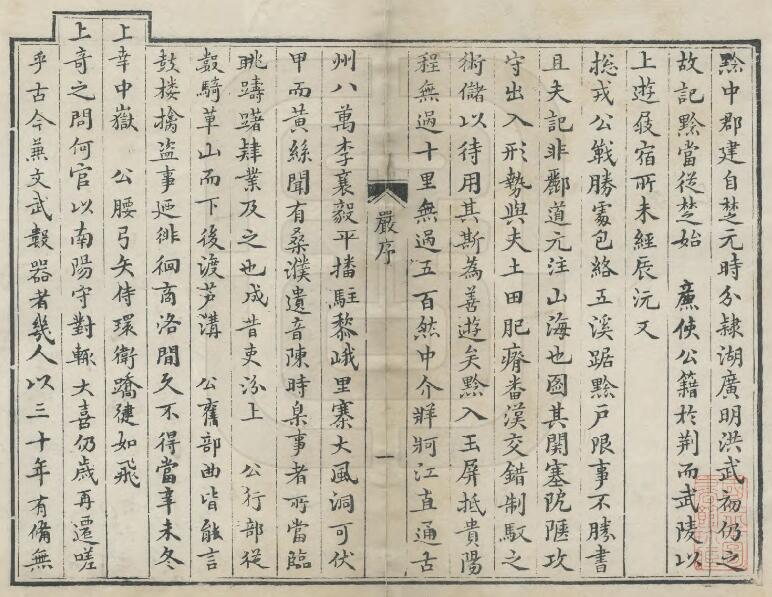 黔中郡建自楚元時分隸湖廣明洪武初仍之
故記黔當從楚始 廉使公籍於荆而武陵以
上遊屐宿所未經辰沅又
總戎公戰勝處包絡五溪踞黔戶限事不勝書
且夫記非酈道元注山海也圖其關塞阨隁攻
守出入形勢與夫土田肥瘠畨漢交錯制馭之
術儲以待用其斯為善遊矣黔入玉屏抵貴陽
程無過十里無過五百然中介牂牁江直通古
嚴序
一
州八萬李襄毅平播駐黎峨里寨大風洞可伏
甲而黃絲聞有桑濮遺音陳時臬事者所當臨
眺躊躇肄業及之也成昔吏汾上 公行部從
數騎草山而下後渡芦溝 公舊部曲皆能言
鼓楼擒盜事廻徘徊商洛間久不得當辛未冬
上幸中嶽 公腰弓矢侍環衛蹻健如飛
上竒之問何官以南陽守對輒大喜仍歲再遷嗟
乎古今兼文武數器者幾人以三十年有備無